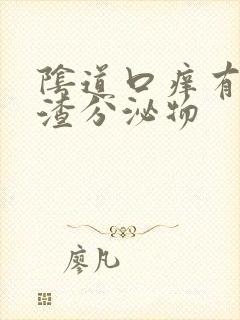 陰道口痒有
渣分泌物
廖凡